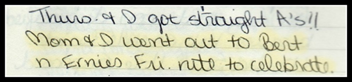 Thurs. & D got straight A's!!
Mom & D went out to Bert
n Ernies Fri. nite to celebrate.